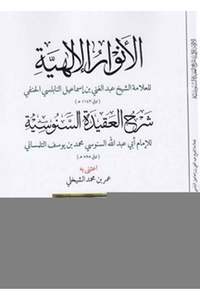 الأنوار الإلهية
للعلامة الشيخ عبد الغني بن إسماعيل النابلسي الحنفي
(توفي ١١٤٣ هـ)
شرح العقيدة السنوسية
للإمام أبي عبد الله السنوسي محمد بن يوسف التلمساني
(توفي ٨٩٥ هـ)
اعتنى به
عمر بن محمد الشيخلي